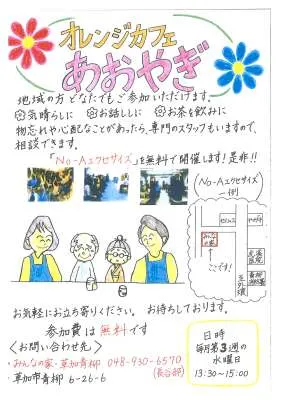 オレンジカフェ
あおやぎ
地域の方 どなたでもご参加いただけます。
気晴らしに お話ししに お茶を飲みに
物忘れや心配なことがあったら、専門のスタッフもいますので、
相談できます。
「No-Aエクササイズ」を無料で開催します!是非!!
(No-Aエクササイズ
一例)
ここです!
お気軽にお立ち寄りください。 お待ちしております。
参加費は無料です
<お問い合わせ先>
・みんなの家・草加青柳 048-930-6570
(長谷部)
草加市青柳 6-26-6
日時
毎月第3週の
水曜日
13:30~15:00